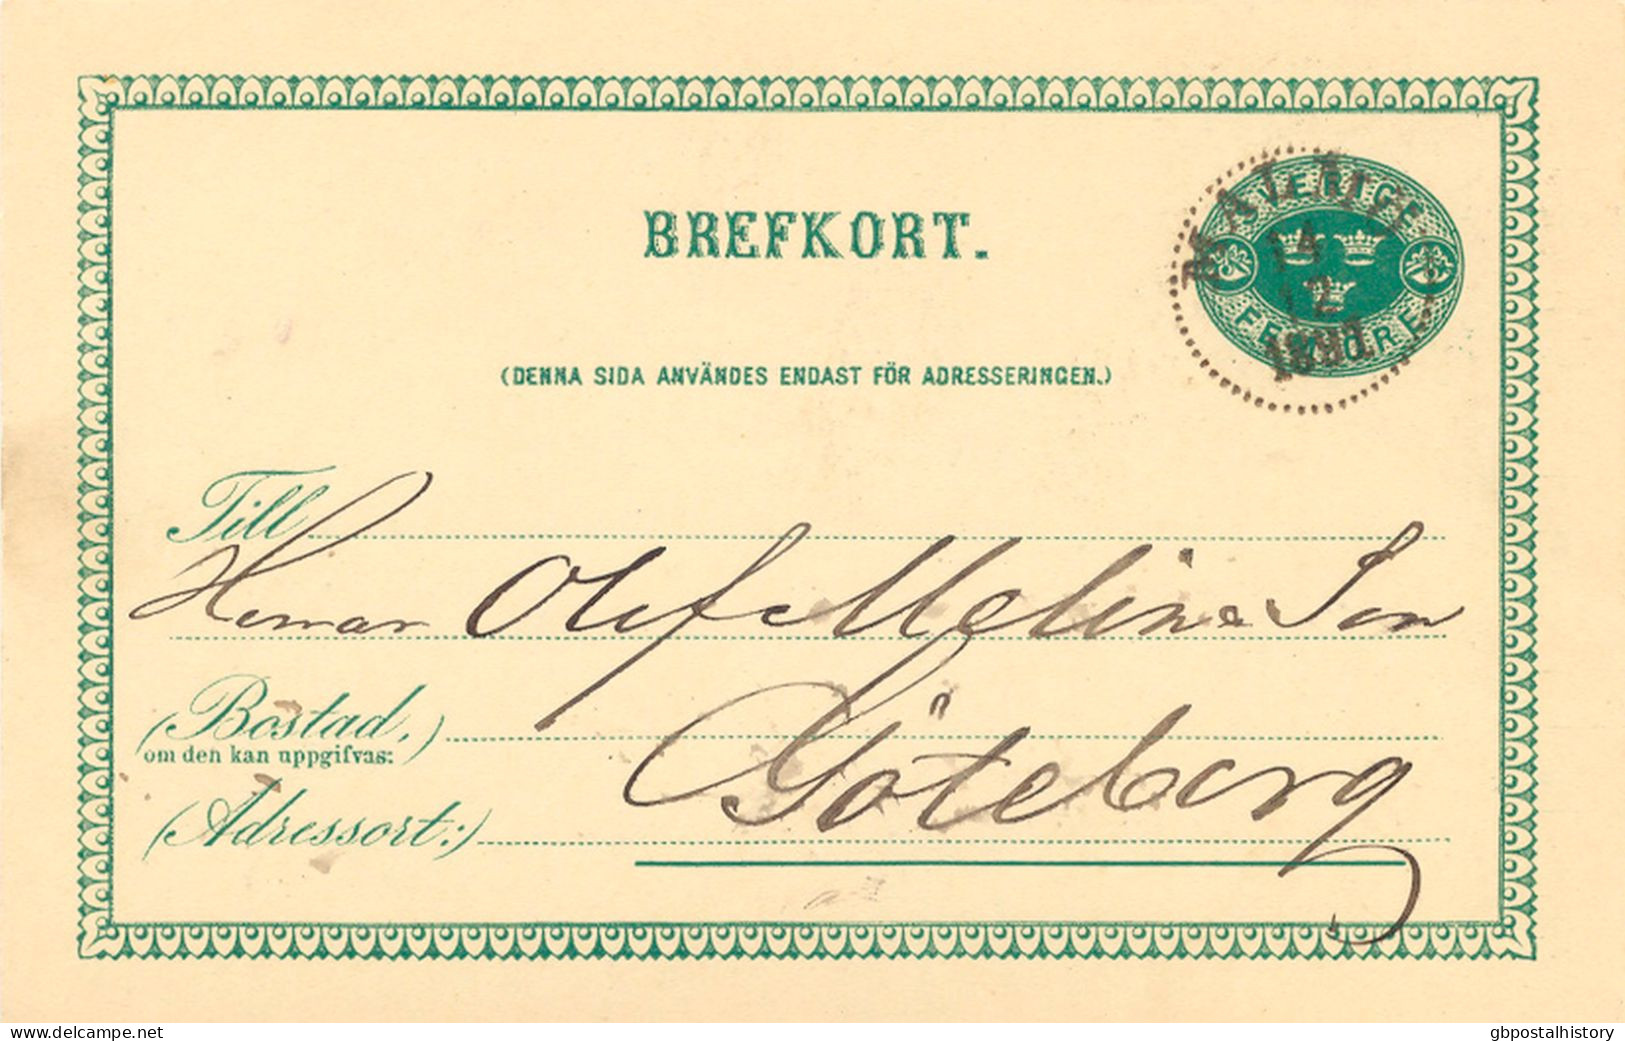 BREFKORT.
SVERIGE
FEM ÖRE
14
12
(DENNA SIDA ANVÄNDES ENDAST FÖR ADRESSERINGEN.)
Till
Herrar Olof Melin & Son
(Bostad,)
om den kan uppgifvas:
Göteborg
(Adressort:)
www.delcampe.net
gbpostalhistory